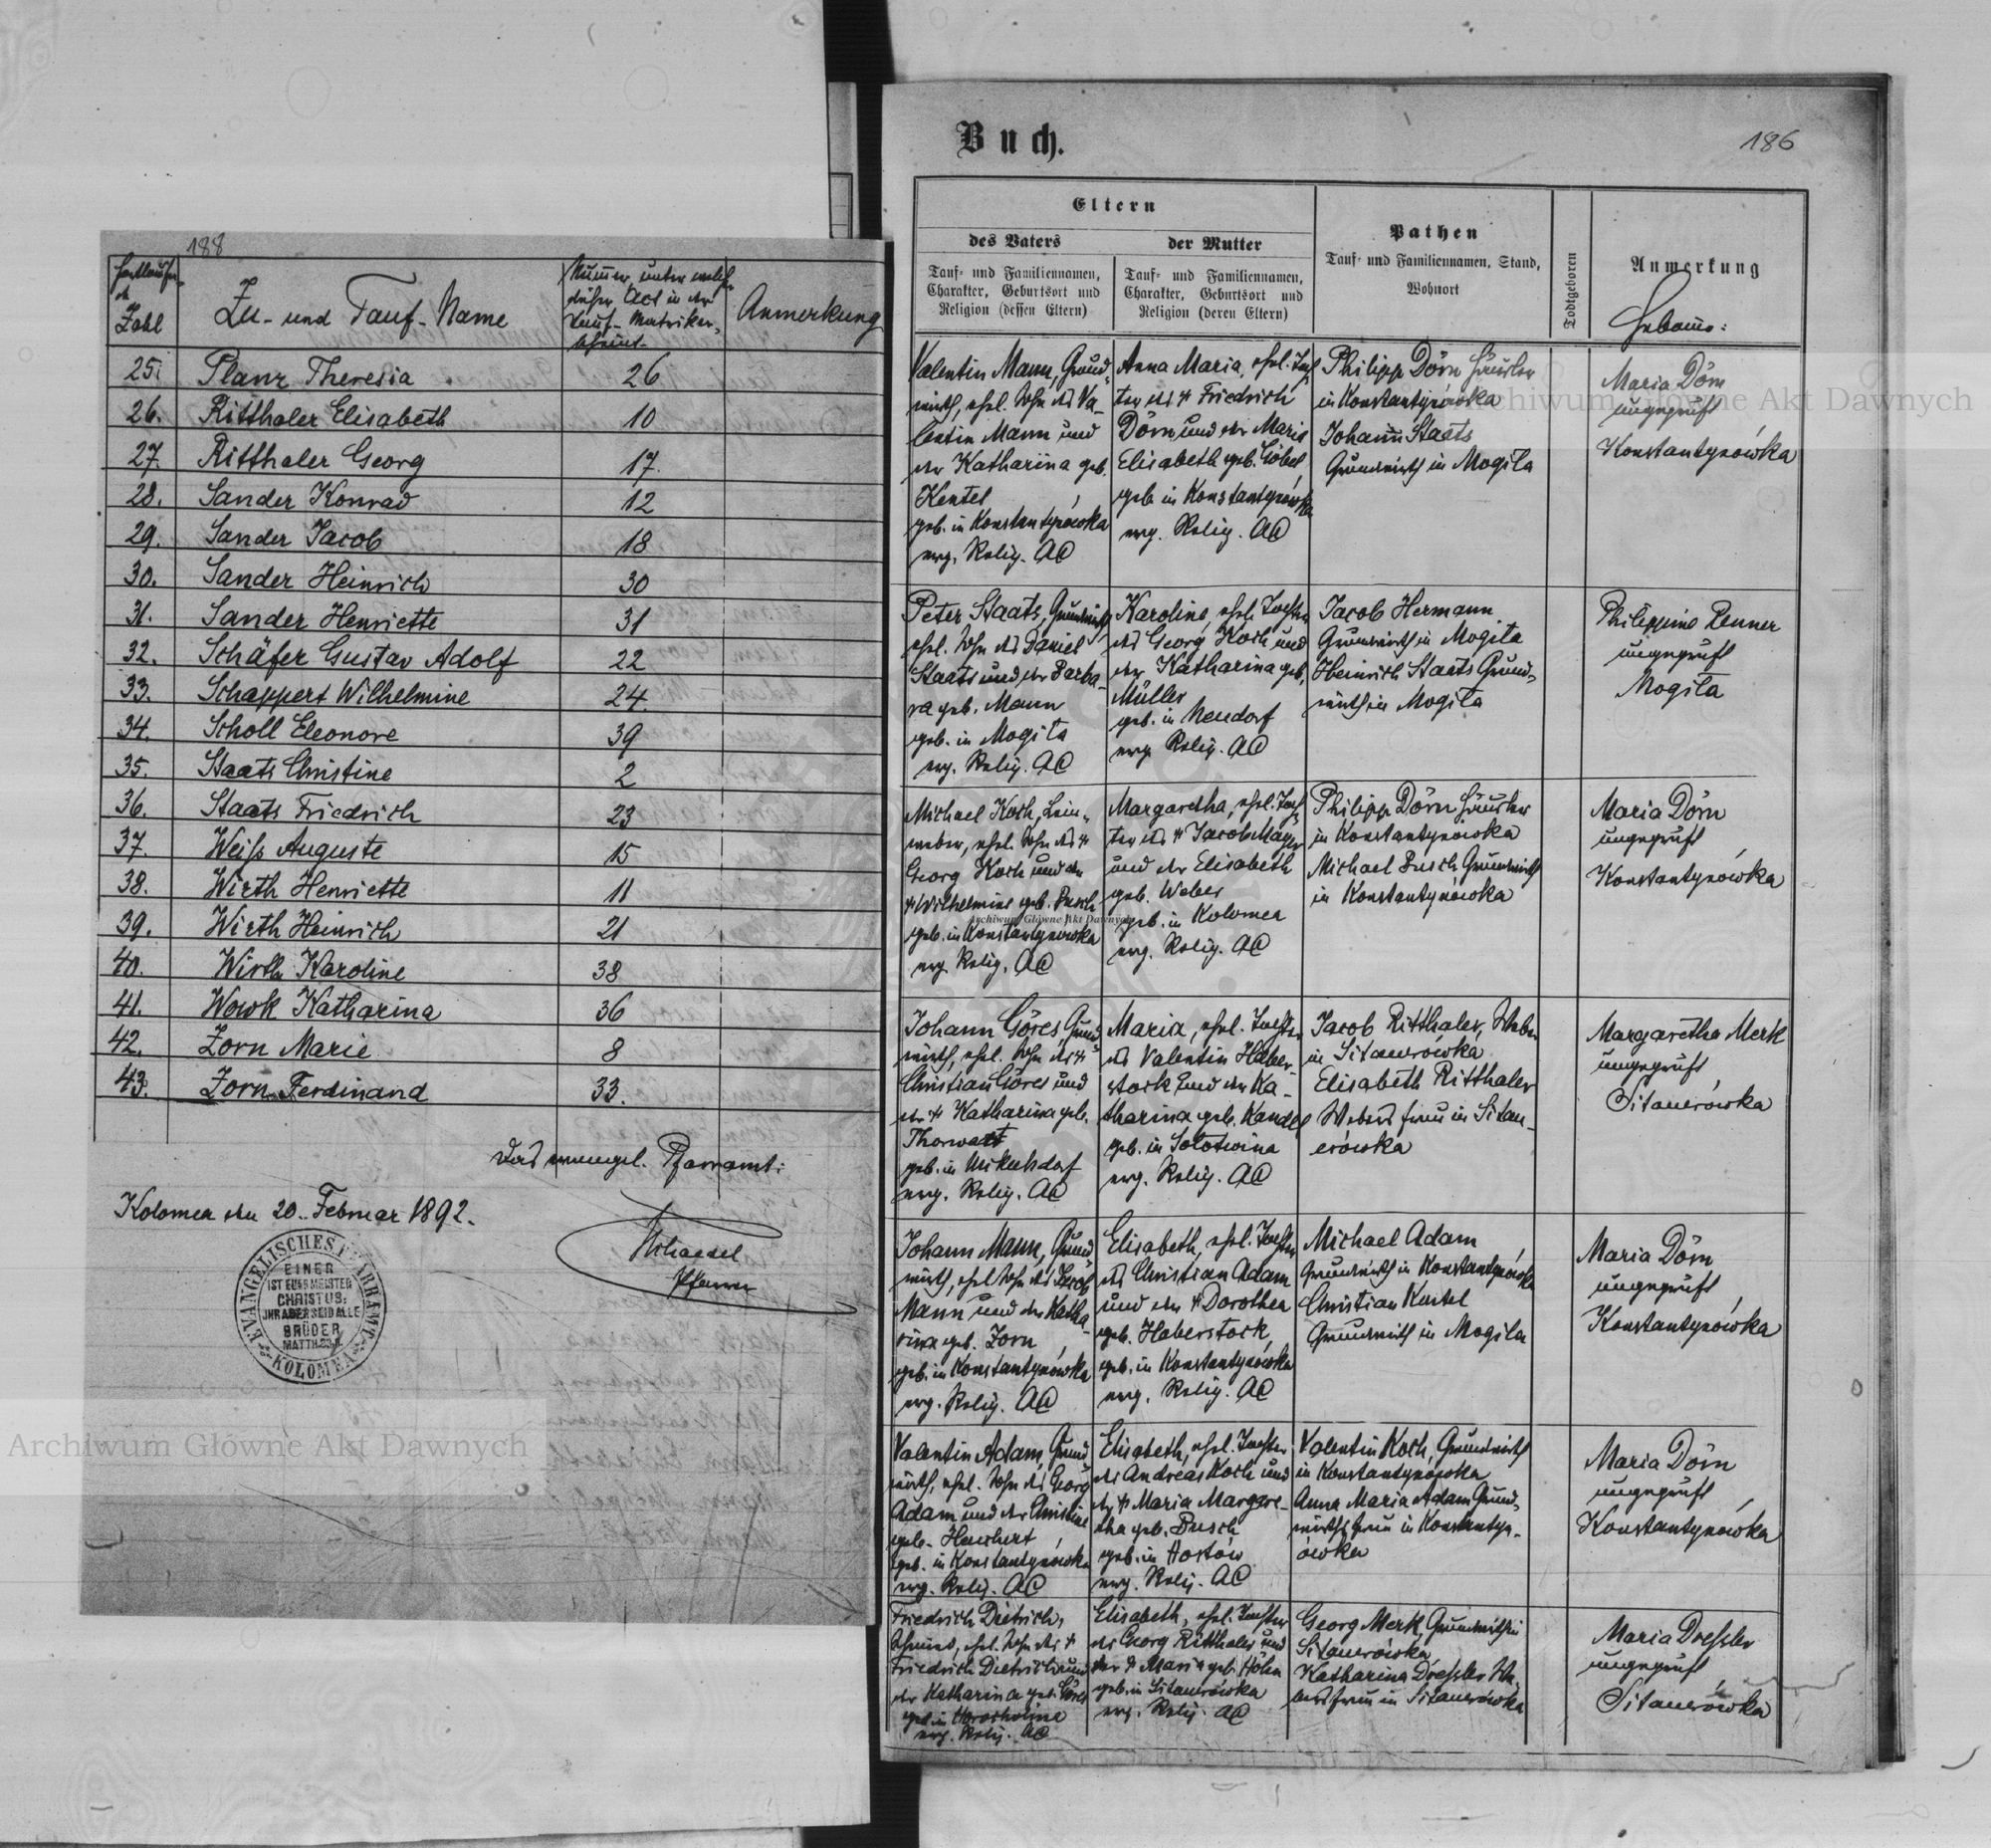 188
Fortlaufende Zahl
Zu- und Tauf-Name
Nummer, unter welcher dieser Act in der Tauf-Matriken
Anmerkung
25. Planz Theresia 26
26. Ritthaler Elisabeth 10
27. Ritthaler Georg 17.
28. Sander Konrad 12
29. Sander Jacob 18
30. Sander Heinrich 30
31. Sander Henriette 31
32. Schäfer Gustav Adolf 22
33. Schappert Wilhelmine 24.
34. Scholl Eleonore 39
35. Staats Christine 2
36. Staats Friedrich 23
37. Weiß Auguste 15
38. Wirth Henriette 11
39. Wirth Heinrich 21
40. Wirth Karoline 38
41. Wowk Katharina 36
42. Zorn Marie 8
43. Zorn Ferdinand 33.
Das evangel. Pfarramt:
Kolomea den 20. Februar 1892.
Pfarrer
EVANGELISCHES PFARRAMT
KOLOMEA
EINER
IST EUER MEISTER
CHRISTUS;
IHR ABER SEID ALLE
BRÜDER
MATTH.23,
Archiwum Główne Akt Dawnych
Buch.
186
Eltern
des Vaters
Tauf- und Familiennamen,
Charakter, Geburtsort und
Religion (dessen Eltern)
der Mutter
Tauf- und Familiennamen,
Charakter, Geburtsort und
Religion (deren Eltern)
Pathen
Tauf- und Familiennamen, Stand,
Wohnort
Todtgeboren
Anmerkung
Hebamme:
Valentin Mann, Grund-
wirth, ehel. Sohn des Va-
lentin Mann und
der Katharina geb.
Kentel
geb. in Konstantynówka
evg. Relig. AC
Anna Maria, ehel. Toch-
ter des + Friedrich
Dörn und der Maria
Elisabeth geb. Göbel
geb in Konstantynówka
evg. Relig. AC
Philipp Dörn Häusler
in Konstantynówka
Johann Staats
Grundwirth in Mogila
Maria Dörn
ungeprüft
Konstantynówka
Peter Staats, Grundwirth
ehel. Sohn des Daniel
Staats und der Barba-
ra geb. Mann
geb. in Mogila
evg. Relig. AC
Karoline, ehel. Tochter
des Georg Koch und
der Katharina geb.
Müller
geb. in Neudorf
evg. Relig. AC
Jacob Hermann
Grundwirth in Mogila
Heinrich Staats Grund-
wirth in Mogila
Philippine Renner
ungeprüft
Mogila
Michael Koch, Lein-
weber, ehel. Sohn des +
Georg Koch und der
+ Wilhelmine geb. Busch
geb. in Konstantynowka
evg. Relig. AC
Margaretha, ehel. Toch-
ter des + Jacob Mayer
und der Elisabeth
geb. Weber
geb. in Kolomea
evg. Relig. AC
Philipp Dörn Häusler
in Konstantynowka
Michael Busch Grundwirth
in Konstantynówka
Maria Dörn
ungeprüft
Konstantynówka
Archiwum Główne Akt Dawnych
Johann Göres, Grund-
wirth, ehel. Sohn des +
Christian Göres und
der + Katharina geb.
Thorwart
geb. in
evg. Relig. AC
Maria, ehel. Tochter
des Valentin Haber-
stock und der Ka-
tharina geb. Kandel
geb. in Solotwina
evg. Relig. AC
Jacob Ritthaler, Weber
in Sitauerówka
Elisabeth Ritthaler
Webers frau in Sitau-
erówka
Margaretha Merk
ungeprüft
Sitauerówka
Johann Mann, Grund-
wirth, ehel Sohn des Jacob
Mann und der Katha-
rina geb. Zorn
geb. in Konstantynówka
evg. Relig. AC
Elisabeth, ehel. Tochter
des Christian Adam
und der + Dorothea
geb. Haberstock
geb. in Konstantynówka
evg. Relig. AC
Michael Adam
Grundwirth in Konstantynówka
Christian Kentel
Grundwirth in Mogila
Maria Dörn
ungeprüft
Konstantynówka
Valentin Adam, Grund-
wirth, ehel. Sohn des Georg
Adam und der Christine
geb.
geb. in Konstantynówka
evg. Relig. AC
Elisabeth, ehel. Tochter
des Andreas Koch und
der + Maria Margare-
tha geb. Busch
geb. in Hostów
evg. Relig. AC
Valentin Koch, Grundwirth
in Konstantynówka
Anna Maria Adam Grund-
wirths frau in Konstantyn-
ówka
Maria Dörn
ungeprüft
Konstantynówka
Friedrich Dietrich,
Schmied, ehel. Sohn des +
Friedrich Dietrich und
der Katharina geb. Göres
geb. in
evg. Relig. AC
Elisabeth, ehel. Tochter
des Georg Ritthaler und
der + Maria geb. Höhn
geb. in Sitauerówka
evg. Relig. AC
Georg Merk, Grundwirth in
Sitauerówka
Katharina Dressler We-
bersfrau in Sitauerówka
Maria Dressler
ungeprüft
Sitauerówka